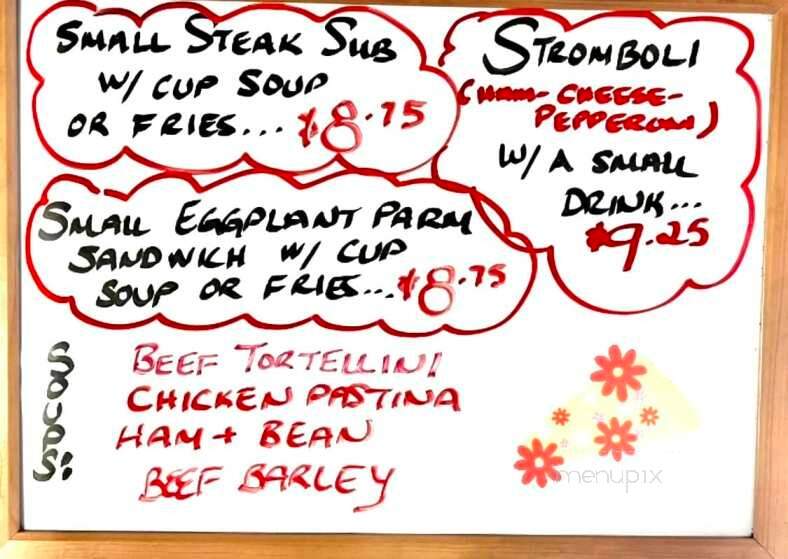 SMALL STEAK SUB
W/ CUP SOUP
OR FRIES... $8.75
STROMBOLI
(HAM-CHEESE-
PEPPERONI)
W/ A SMALL
DRINK...
$9.25
SMALL EGGPLANT PARM
SANDWICH W/ CUP
SOUP OR FRIES... $8.75
SOUPS:
BEEF TORTELLINI
CHICKEN PASTINA
HAM + BEAN
BEEF BARLEY
menupix